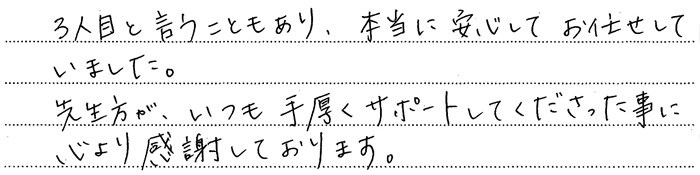 3人目と言うこともあり、本当に安心してお任せして
いました。
先生方が、いつも手厚くサポートしてくださった事に
心より感謝しております。